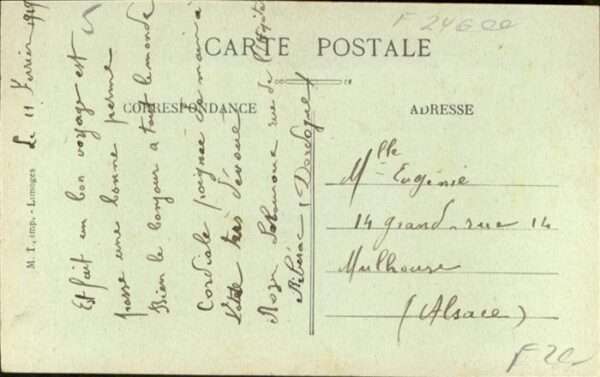 F 24Gcc
CARTE POSTALE
CORRESPONDANCE
ADRESSE
M. T., imp. - Limoges
Le 11 Février 1919
Est fait un bon voyage est
passe une bonne
Bien le bonjour a tout le monde
Cordiale poignée de main à
très dévoué
Roger rue de
Ribérac (Dordogne)
Mlle Eugénie
14 grand. rue 14
Mulhouse
(Alsace)
F 20-